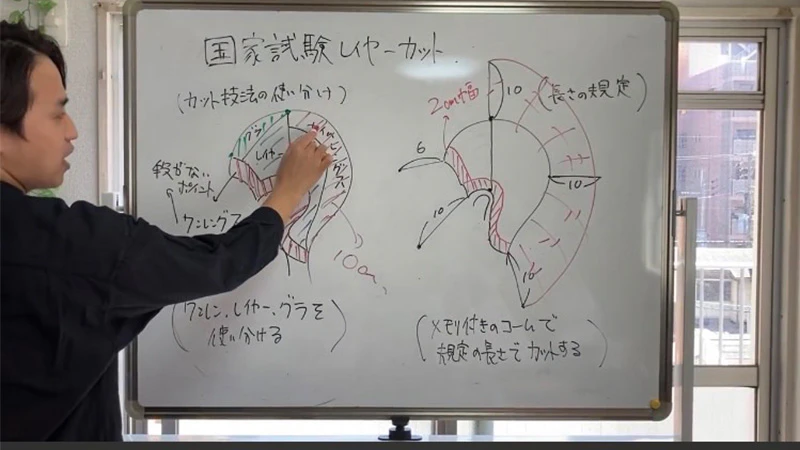 国家試験レイヤーカット
(カット技法の使い分け)
グラ
レイヤー
段がない
ポイント
ワンレングス
10cm
(ワンレン、レイヤー、グラを
使い分ける)
2cm幅
10
(長さの規定)
6
10
10
16
(メモリ付きのコームで
規定の長さでカットする)